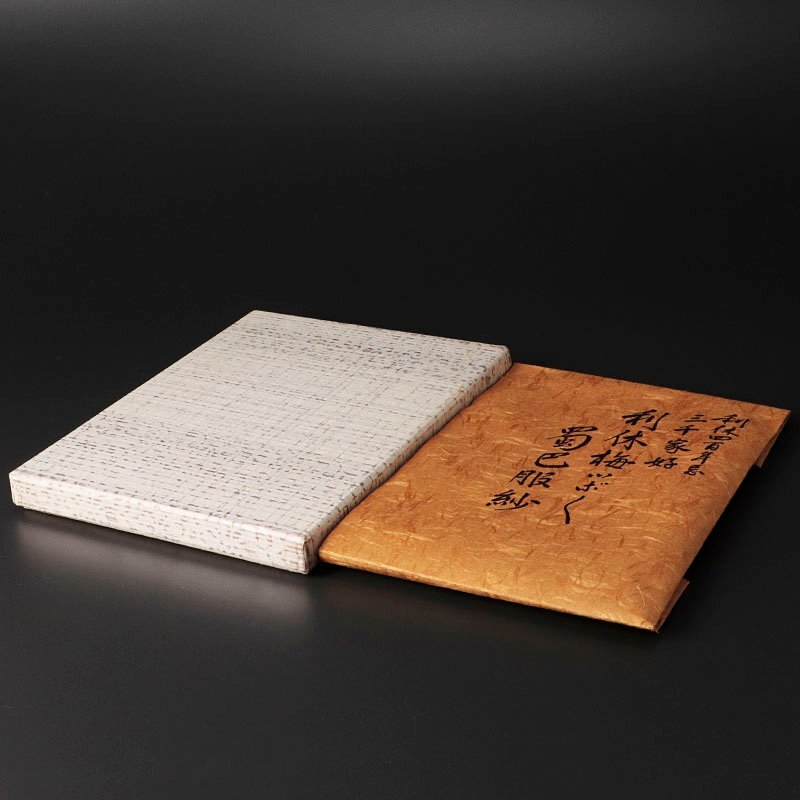 利休四百年忌
三千家好
利休梅
蜀巴服紗